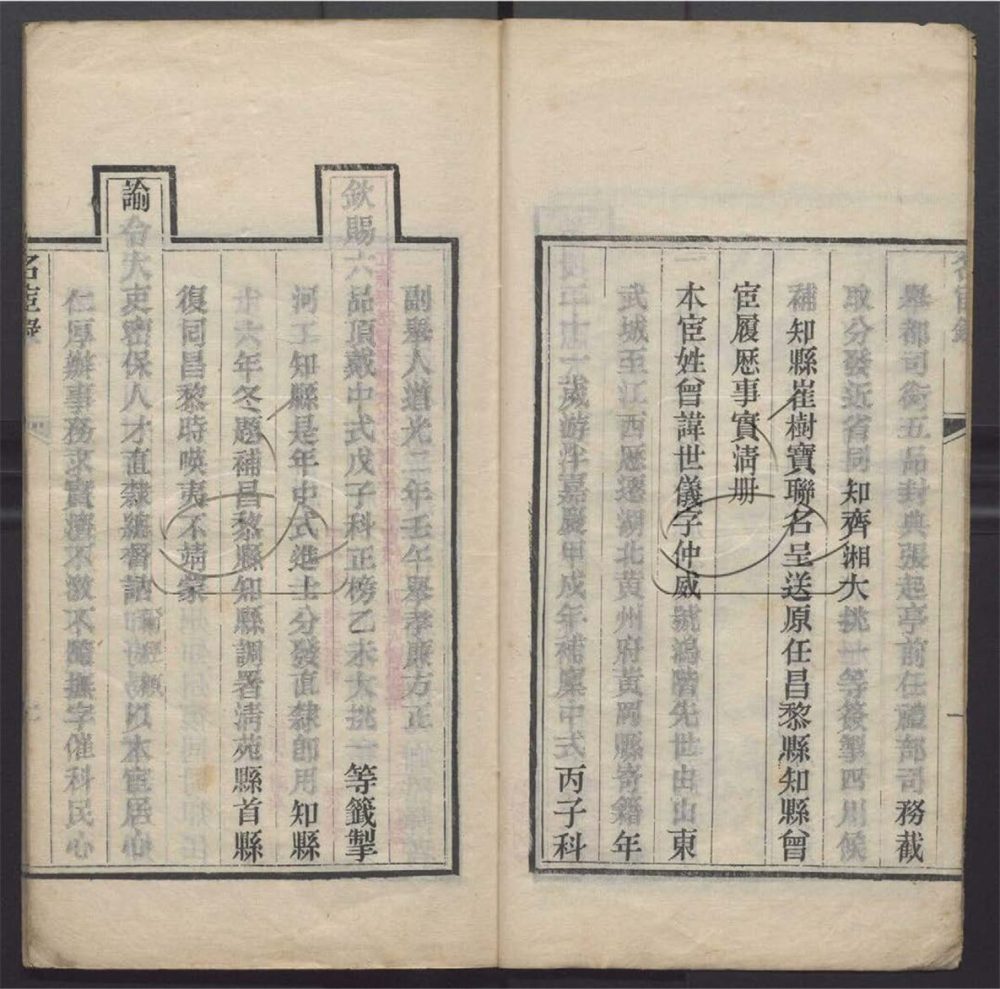 舉都司銜五品封典張起亭前任禮部司務截
取分發近省同知齊湘大挑一等簽掣四川候
補知縣崔樹寶聯名呈送原任昌黎縣知縣曾
宦履歷事實清册
本宦姓曾諱世儀字仲威號鴻階先世由山東
武城至江西歷遷湖北黃州府黃岡縣寄籍年
正十一歲游泮嘉慶甲戌年補廩中式丙子科
副舉人道光二年壬午舉孝廉方正
欽賜六品頂戴中式戊子科正榜乙未大挑一等籤掣
河工知縣是年中式進士分發直隸卽用知縣
廿六年冬題補昌黎縣知縣調署淸苑縣首縣
復回昌黎時㬇夷不靖蒙
諭令大吏密保人才直隸總督訥以本宦居心
仁厚辦事務求實濟不激不隨撫字催科民心
名宦錄